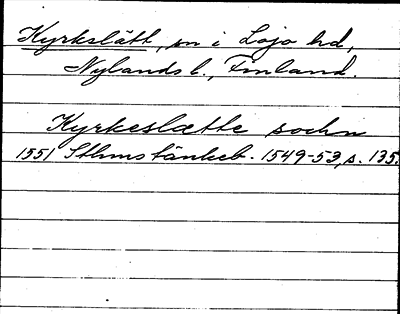 Kyrkslätt, sn i Lojo hd,
Nylands l., Finland.
Kyrkeslætte sochn
1551 Sthms tänkeb. 1549-53, s. 135.